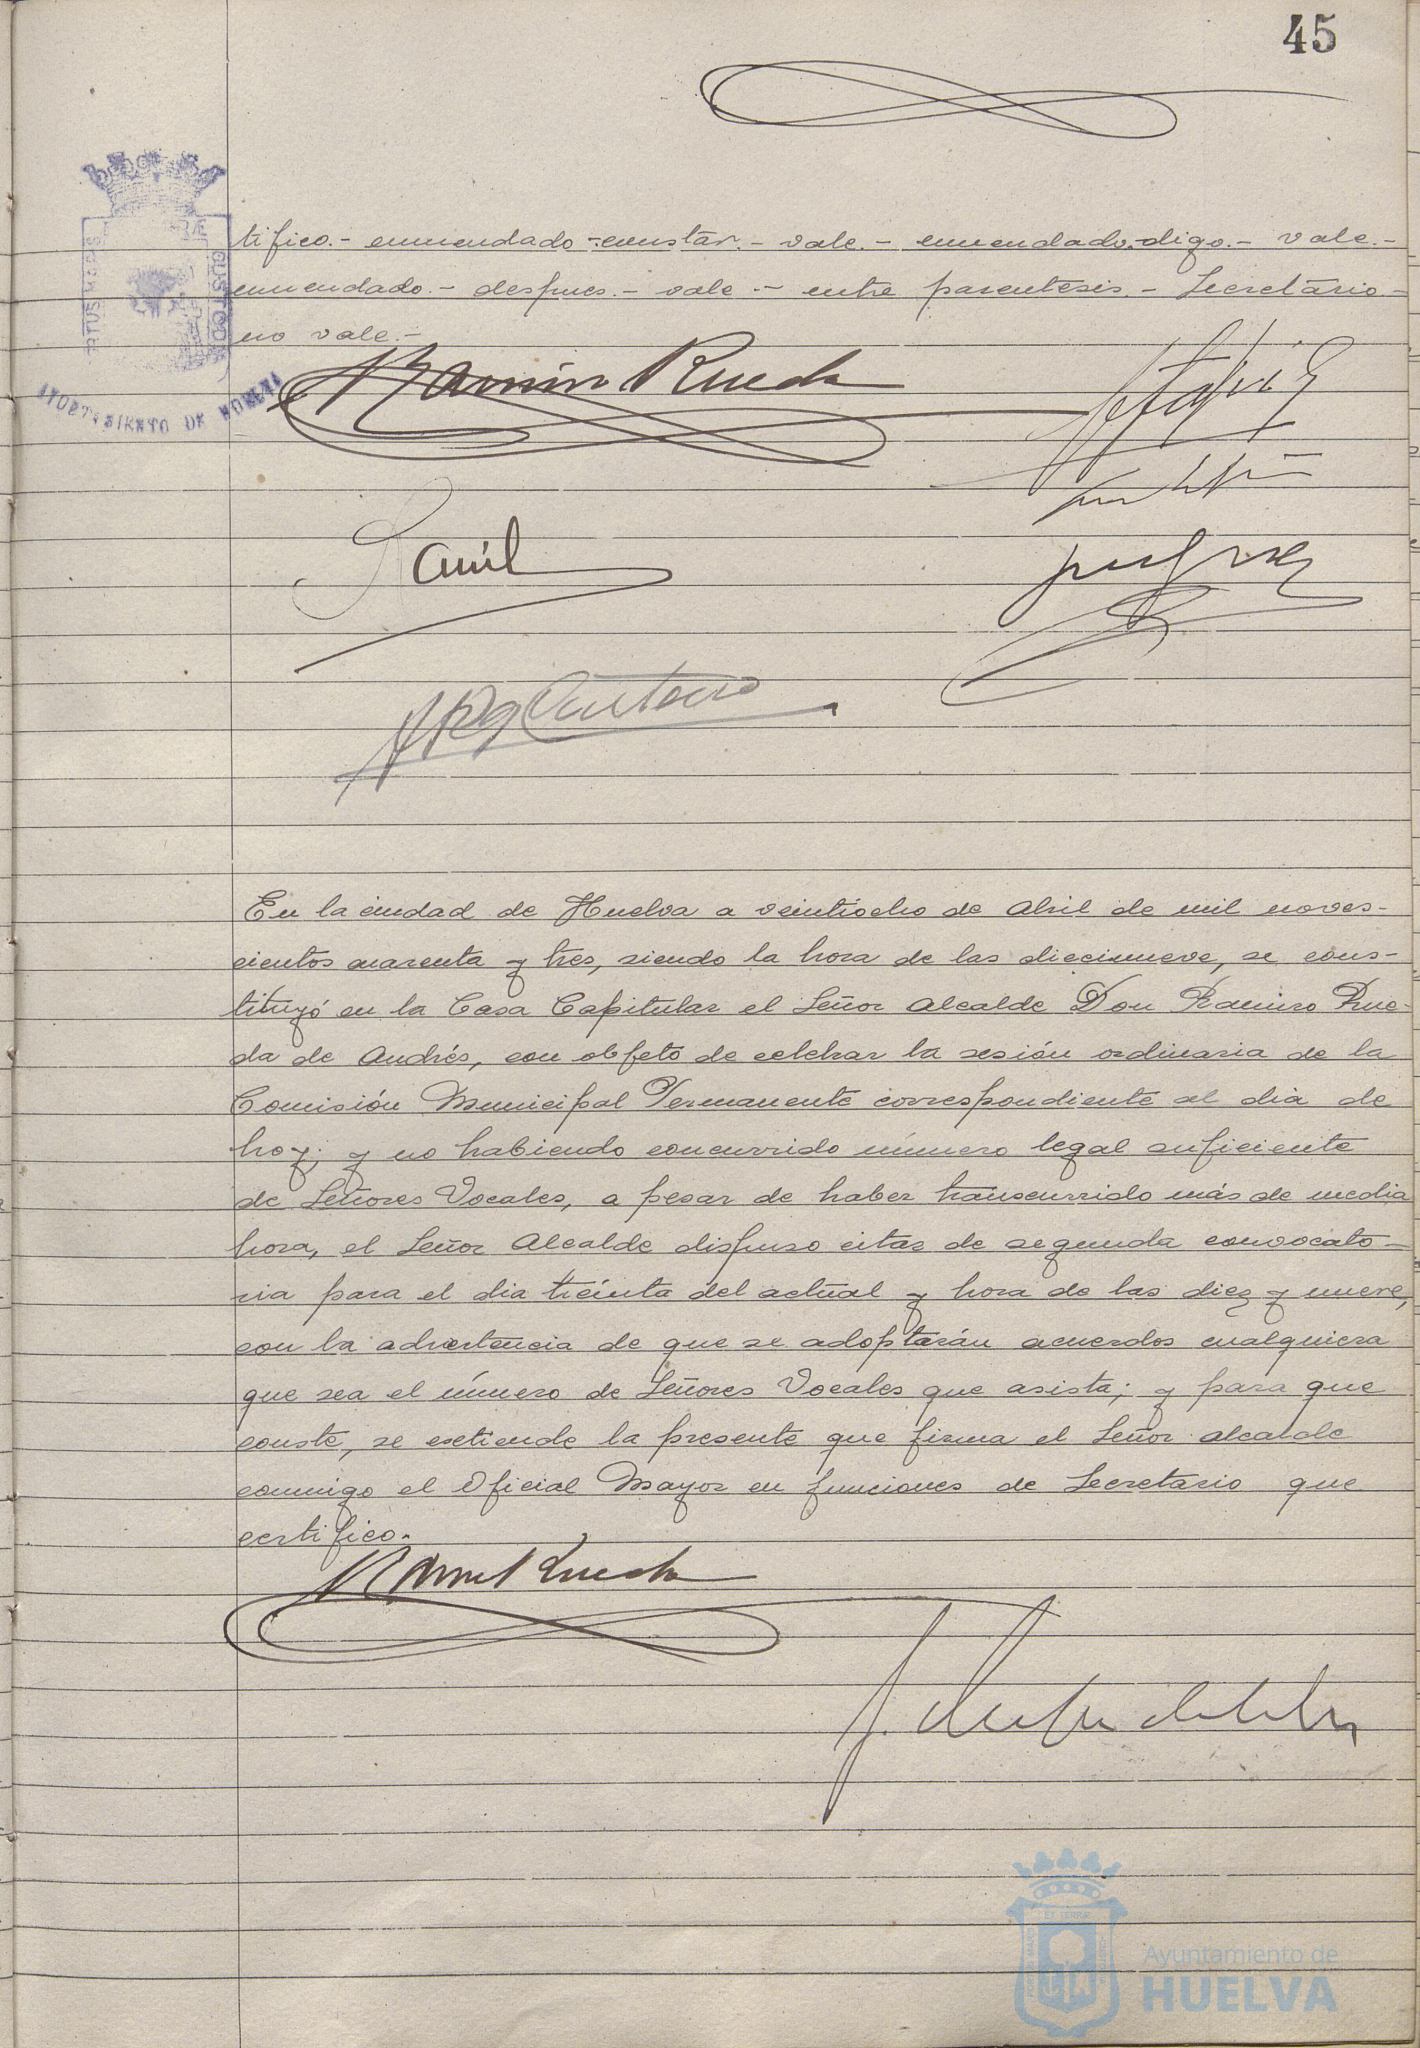 45
tifico.- enmendado-constar.- vale.- enmendado-digo.- vale.-
enmendado.- despues.- vale.- entre parentesis.- Secretario-
no vale.-
PORTUS MARIS
CUSTODIA
AYUNTAMIENTO DE HUELVA
Ramiro Rueda
En la ciudad de Huelva a veintiocho de Abril de mil noves-
cientos cuarenta y tres, siendo la hora de las diecinueve, se cons-
tituyó en la Casa Capitular el Señor Alcalde Don Ramiro Rue-
da de Andrés, con objeto de celebrar la sesión ordinaria de la
Comisión Municipal Permanente correspondiente al dia de
hoy; y no habiendo concurrido número legal suficiente
de Señores Vocales, a pesar de haber transcurrido más de media
hora, el Señor Alcalde dispuso citar de segunda convocato-
ria para el dia treinta del actual y hora de las diez y nueve,
con la advertencia de que se adoptarán acuerdos cualquiera
que sea el número de Señores Vocales que asista; y para que
conste, se extiende la presente que firma el Señor Alcalde
conmigo el Oficial Mayor en funciones de Secretario que
certifico.
Ramiro Rueda
Ayuntamiento de
HUELVA